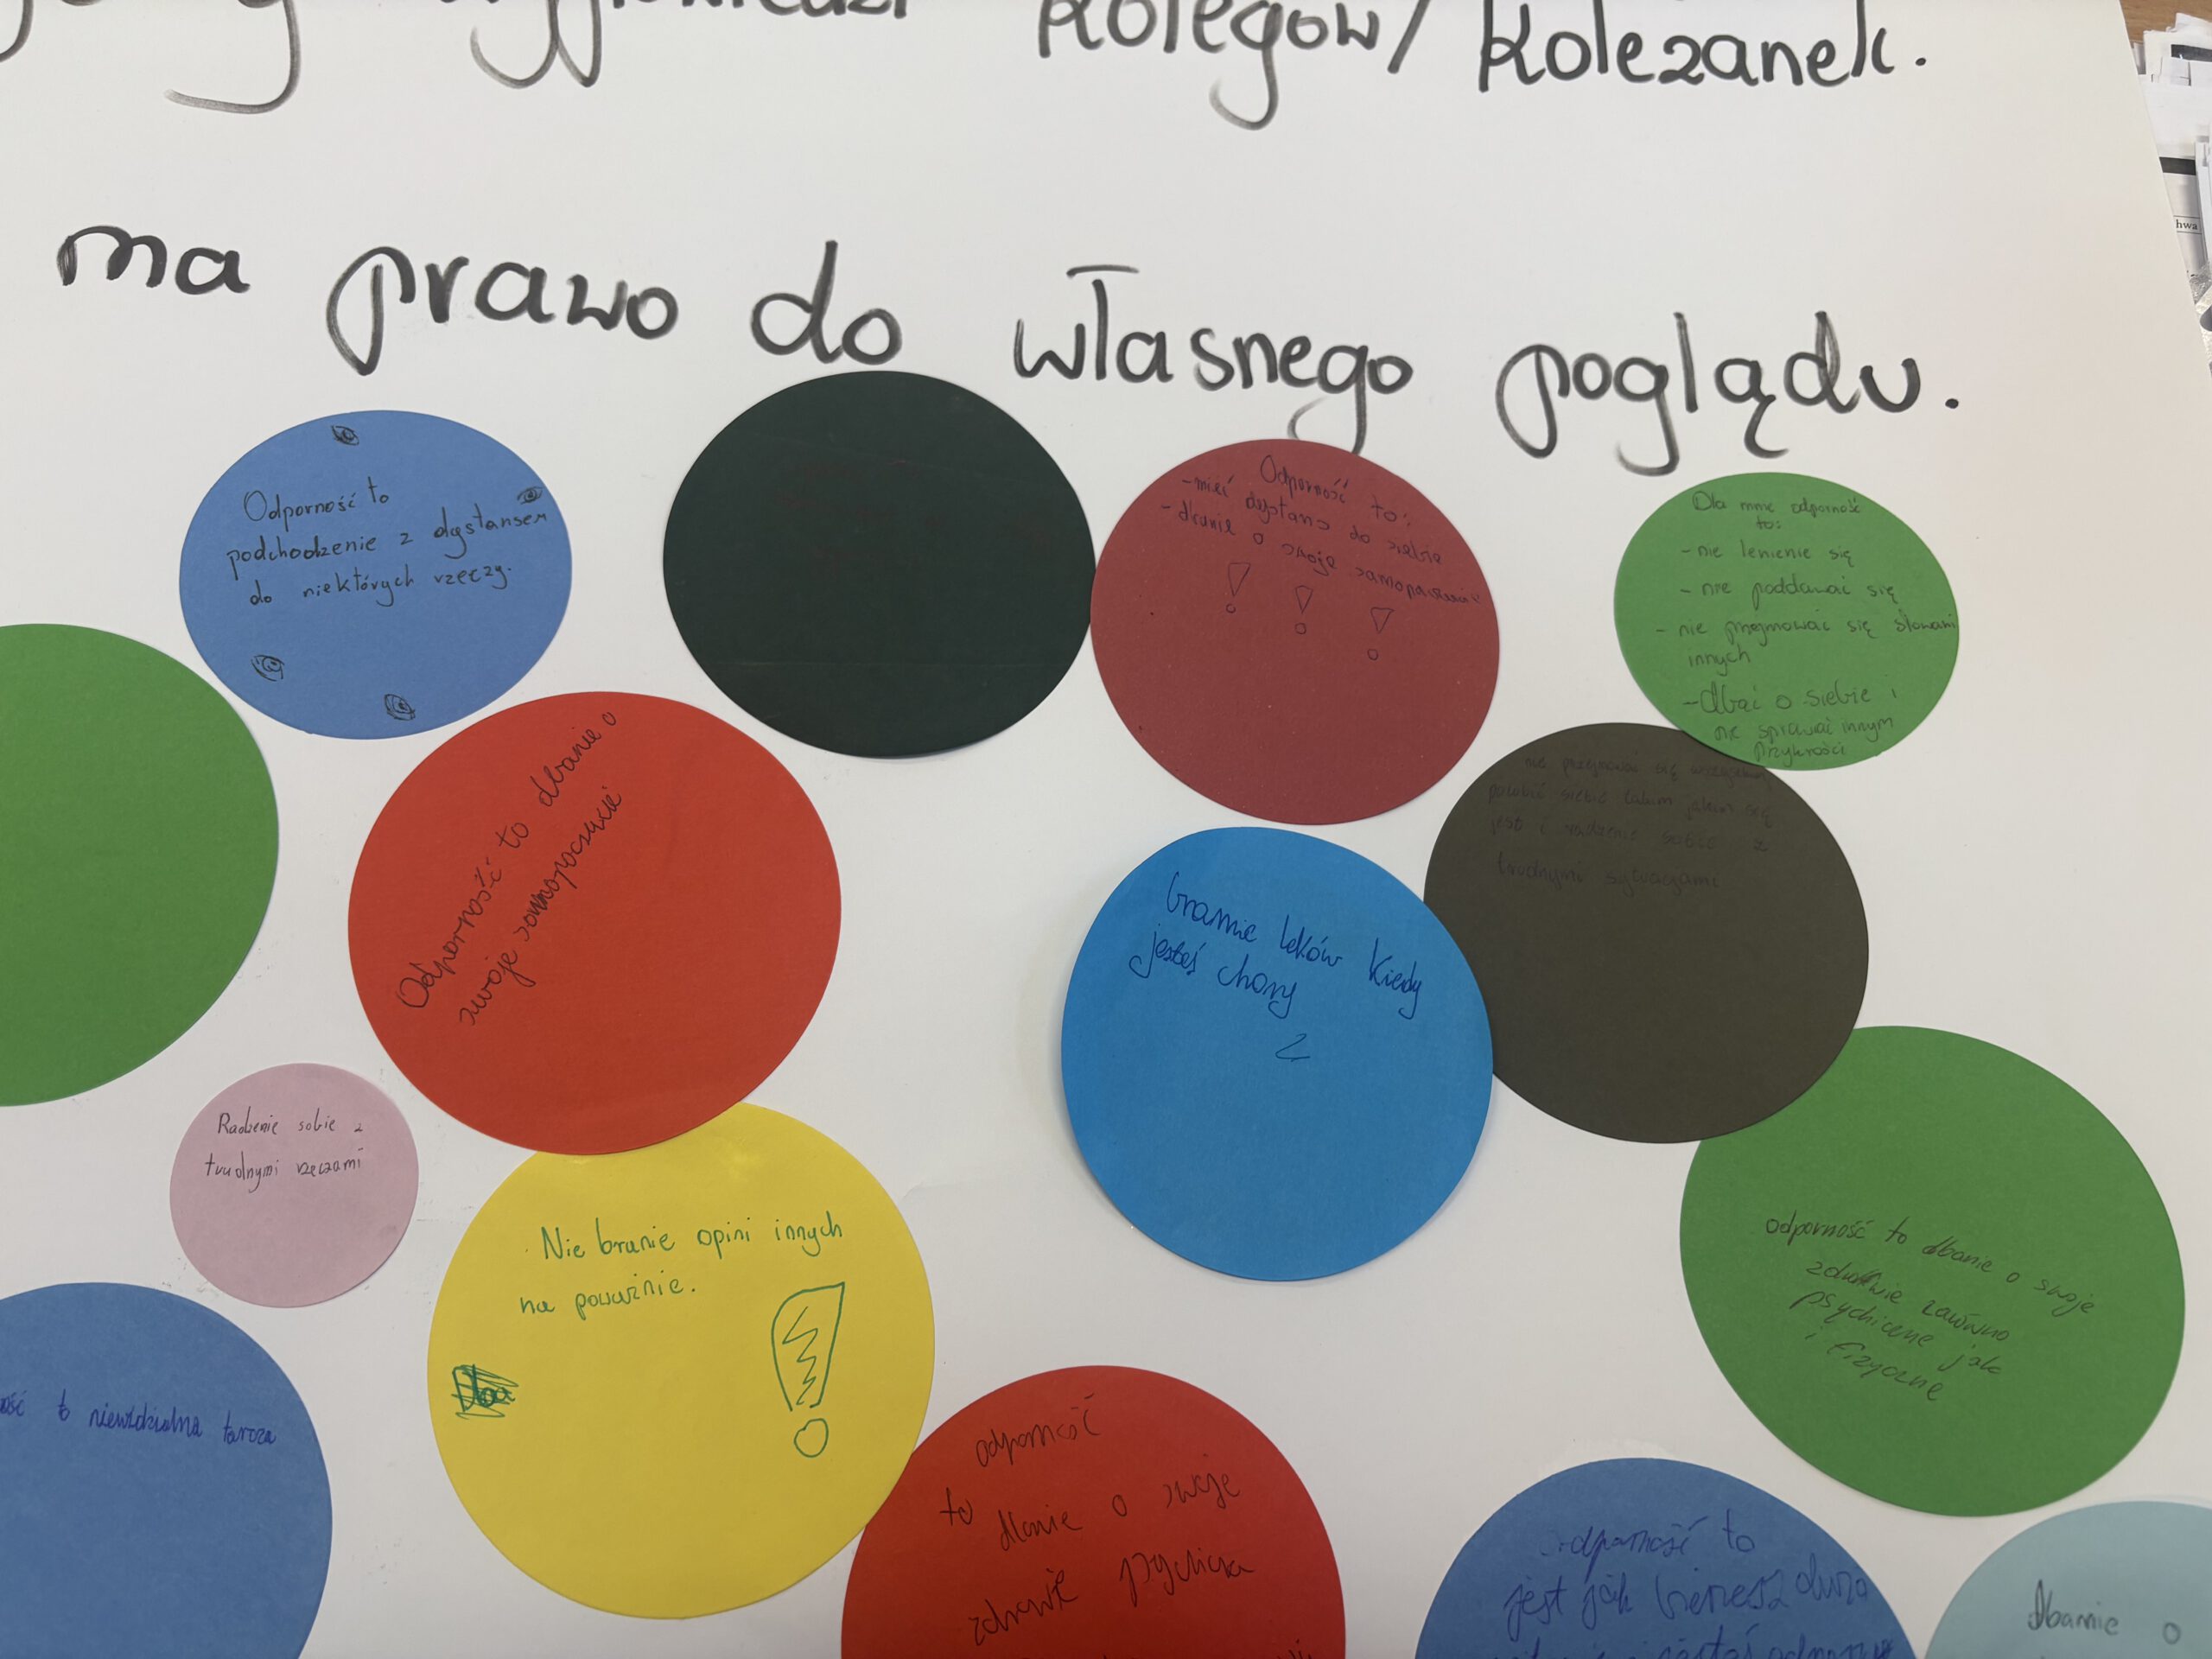 kolegów/ koleżanek.
ma prawo do własnego poglądu.
Odporność to
podchodzenie z dystansem
do niektórych rzeczy.
Odporność to:
- mieć dystans do siebie
- dbanie o swoje samopoczucie
! ! !
Dla mnie odporność
to:
- nie lenienie się
- nie poddawać się
- nie przejmować się słowami
innych
- dbać o siebie i
nie sprawiać innym
przykrości
Odporność to dbanie o
swoje samopoczucie
nie przejmować się
polubić siebie takim jakim się
jest i radzenie sobie z
trudnymi sytuacjami
branie leków kiedy
jesteś chory
Radzenie sobie z
trudnymi rzeczami
Nie branie opini innych
na poważnie.
!
odporność to dbanie o swoje
zdrowie zarówno
psychiczne jak
i fizyczne
ość to niewidzialna tarcza
odporność
to dbanie o swoje
zdrowie
odporność to
jest jak bierzesz dużo
dbanie o
hwa